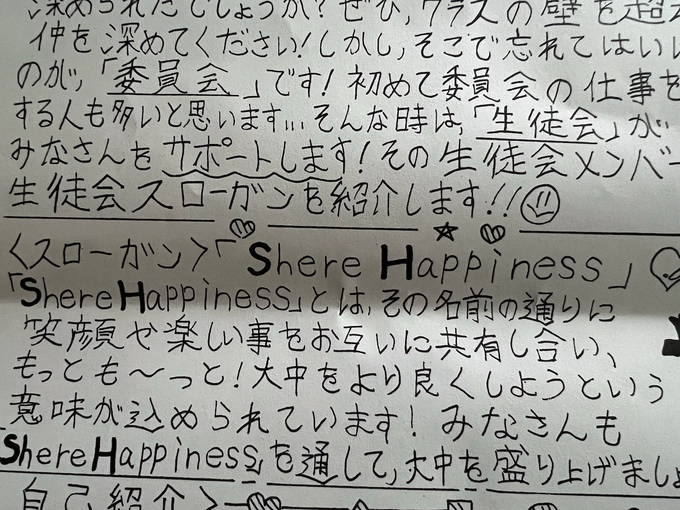 深められたでしょうか？ぜひ、クラスの壁を超
仲を深めてください！しかし、そこで忘れてはいけ
のが、「委員会」です！初めて委員会の仕事を
する人も多いと思います...そんな時は、「生徒会」が
みなさんをサポートします！その生徒会メンバー
生徒会スローガンを紹介します!!
〈スローガン〉「Shere Happiness」
「Shere Happiness」とは、その名前の通りに
笑顔や楽しい事をお互いに共有し合い、
もっとも〜っと！大中をより良くしようという
意味が込められています！みなさんも
Shere Happiness」を通して、大中を盛り上げましょ
自己紹介〉